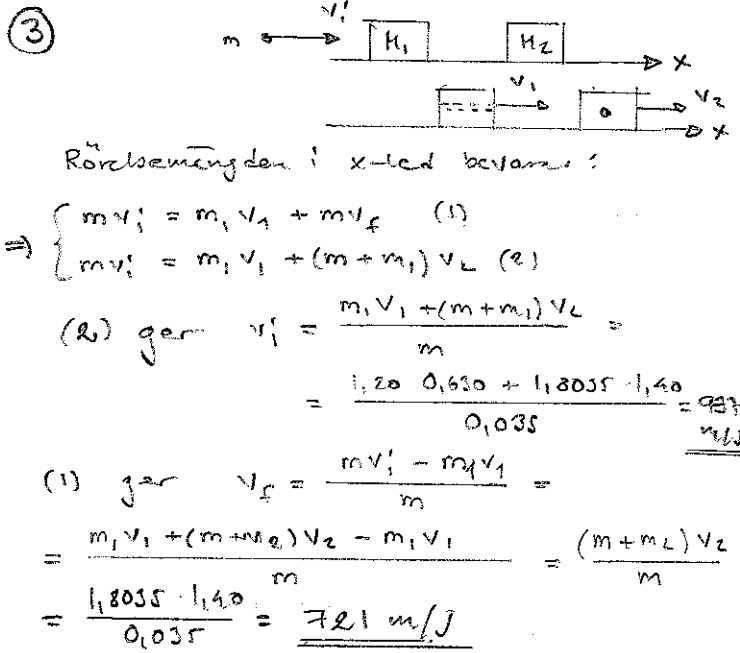 3
m vᵢ M₁ M₂ x
v₁ v₂ x
Rörelsemängden i x-led bevaras:
⇒ { mvᵢ = m₁v₁ + mv_f (1)
mvᵢ = m₁v₁ + (m+m₁)v₂ (2)
(2) ger vᵢ = (m₁v₁ + (m+m₁)v₂)/m =
= (1,20 0,630 + 1,8035 · 1,40)/0,035 = 937 m/s
(1) ger v_f = (mvᵢ - m₁v₁)/m =
= (m₁v₁ + (m+m₂)v₂ - m₁v₁)/m = ((m+m₂)v₂)/m
= (1,8035 · 1,40)/0,035 = 721 m/s